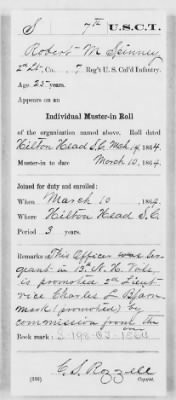 S 7th U.S.C.T.
Robert M Spinney
2d Lt, Co. 7 Reg't U. S. Col'd Infantry.
Age 25 years.
Appears on an
Individual Muster-in Roll
of the organization named above. Roll dated
Hilton Head S.C. Mch 14, 1864.
Muster-in to date March 10, 1864.
Joined for duty and enrolled:
When March 10, 1864.
Where Hilton Head S.C.
Period 3 years.
Remarks: This Officer was Ser-
geant in N. H. Vols
is promoted 2d Lieut
vice Charles L
(promoted) by
commission from the
Book mark: S-198-CT-1864
(350) Copyist.